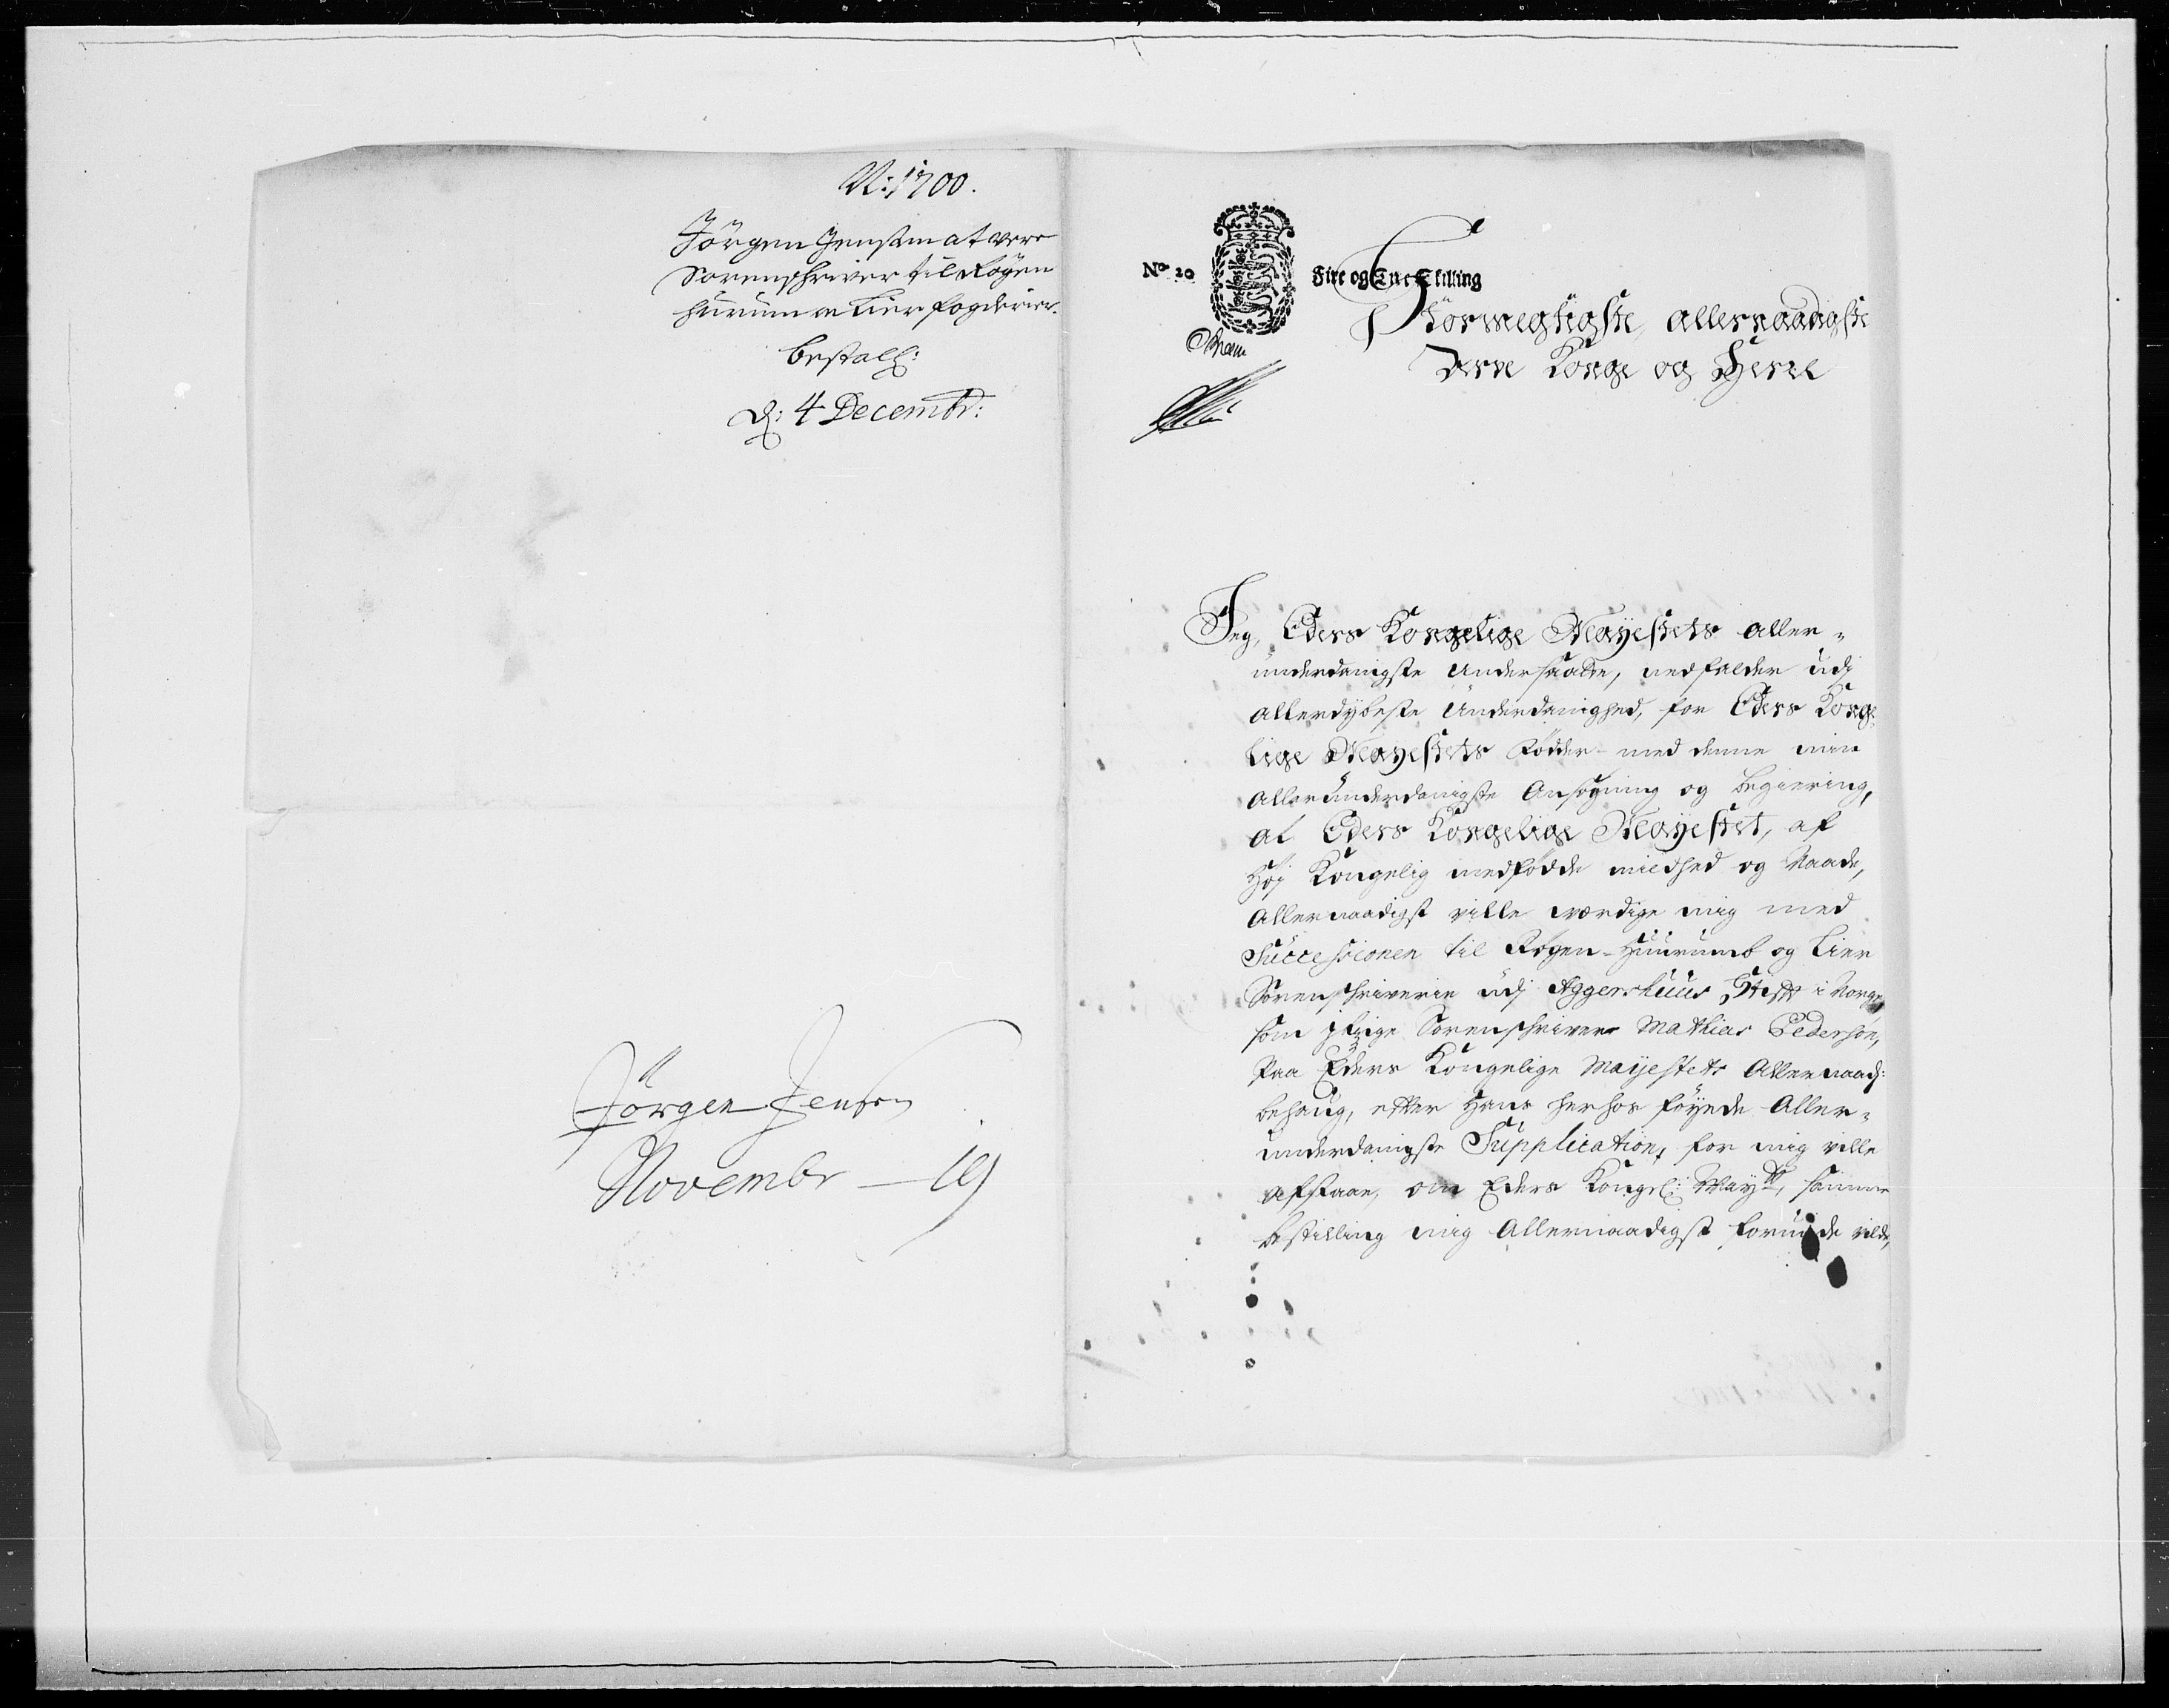 A: 1700.
Jörgen Jensøn at være
Sorenskriver til Røgen
Hurum oc Lier fogderier.
bestall:
d: 4 Decembr:
Jörgen Jensen
Novembr — 19
No 20
Fire og Tive Skilling
Stormegtigste, allernaadigste
Arve Konge og Herre
Jeg, Eders Kongelige Mayestets aller-
underdanigste Undersaatte, nedfalder udj
allerdybeste Underdanighed, for Eders Konge
lige Mayestets Fødder med denne min
allerunderdanigste Ansøgning og begiering,
at Eders Kongelige Mayestet, af
høj Kongelig medfødde mildhed og Naade,
allernaadigst ville værdige mig med
Successionen til Røgen-Huurumb og Lier
Sorenskriverie udj Aggershuus Stift i Norge,
som itzige Sorenskriver Mathias Pederson,
paa Eders Kongelige Mayestets Allernaad:
behaug, efter hans herhos føyede Aller-
underdanigste Supplication, for mig ville
afstaae, om Eders Kongel: Mayts, samme
bestilling mig Allernaadigst forunde vilde,